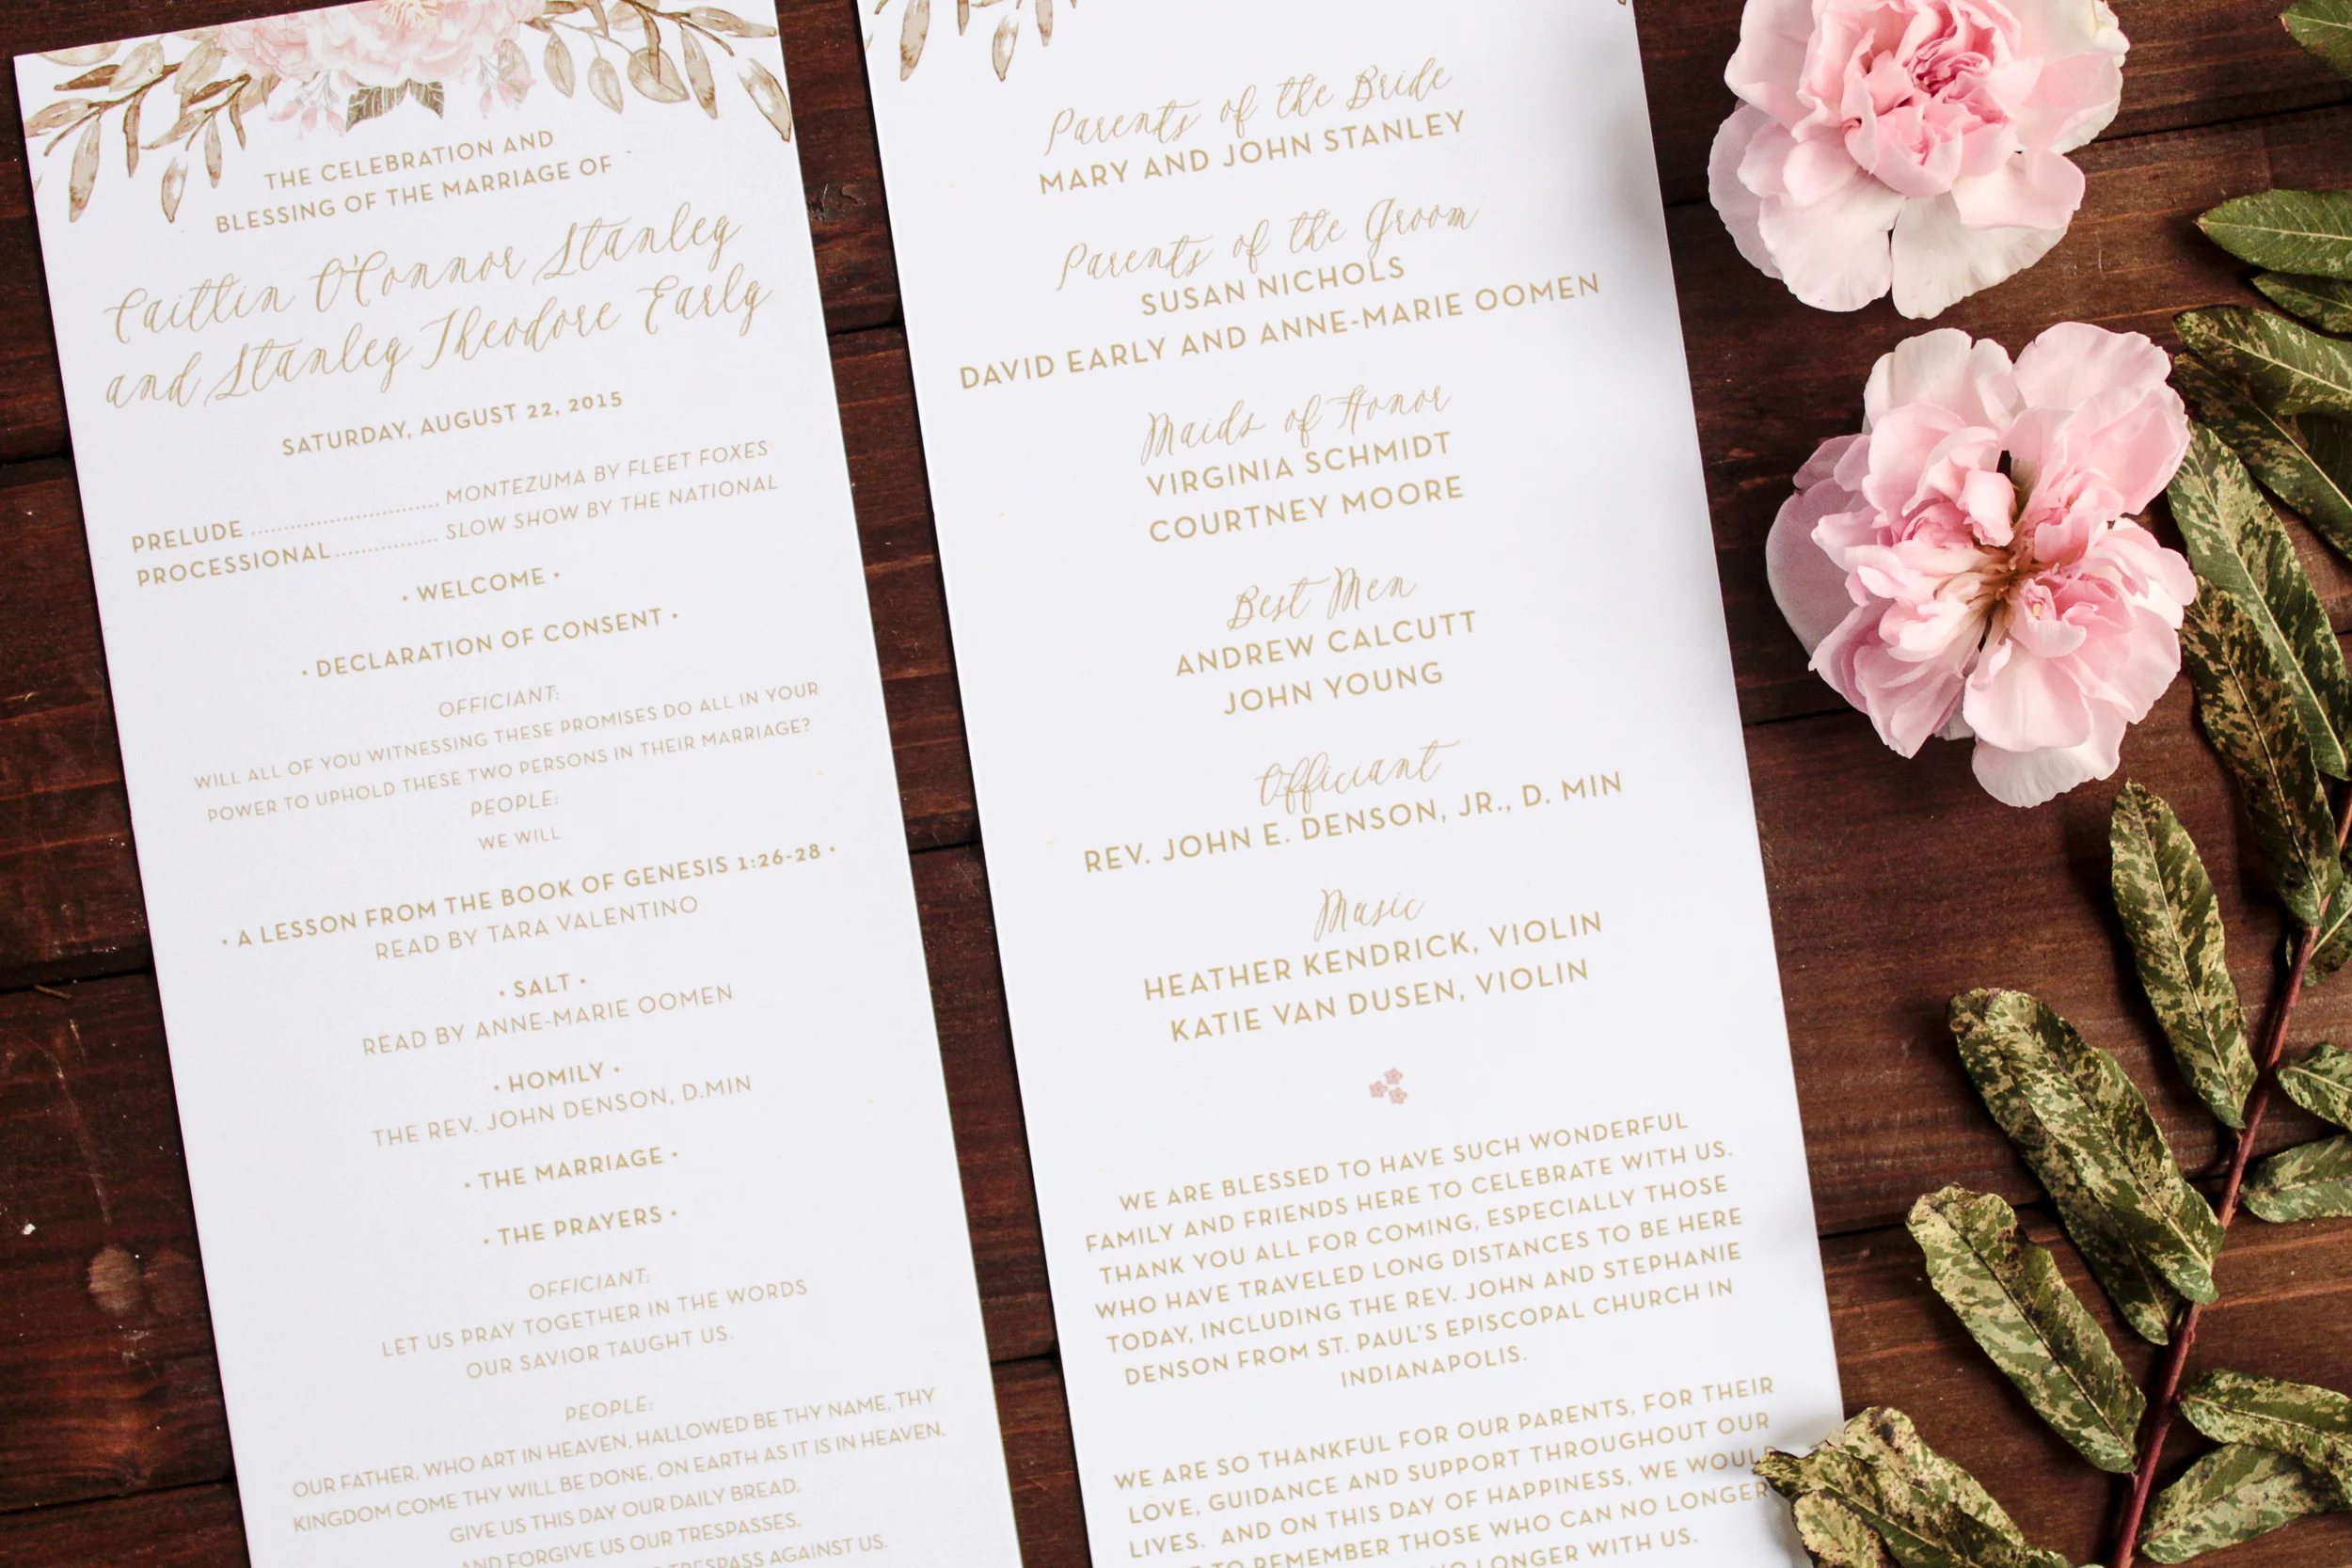 THE CELEBRATION AND
BLESSING OF THE MARRIAGE OF
Caitlin O'Connor Stanley
and Stanley Theodore Early
SATURDAY, AUGUST 22, 2015
PRELUDE ................................ MONTEZUMA BY FLEET FOXES
PROCESSIONAL ................. SLOW SHOW BY THE NATIONAL
• WELCOME •
• DECLARATION OF CONSENT •
OFFICIANT:
WILL ALL OF YOU WITNESSING THESE PROMISES DO ALL IN YOUR
POWER TO UPHOLD THESE TWO PERSONS IN THEIR MARRIAGE?
PEOPLE:
WE WILL
• A LESSON FROM THE BOOK OF GENESIS 1:26-28 •
READ BY TARA VALENTINO
• SALT •
READ BY ANNE-MARIE OOMEN
• HOMILY •
THE REV. JOHN DENSON, D.MIN
• THE MARRIAGE •
• THE PRAYERS •
OFFICIANT:
LET US PRAY TOGETHER IN THE WORDS
OUR SAVIOR TAUGHT US.
PEOPLE:
OUR FATHER, WHO ART IN HEAVEN, HALLOWED BE THY NAME, THY
KINGDOM COME THY WILL BE DONE, ON EARTH AS IT IS IN HEAVEN.
GIVE US THIS DAY OUR DAILY BREAD.
AND FORGIVE US OUR TRESPASSES,
TRESPASS AGAINST US.
Parents of the Bride
MARY AND JOHN STANLEY
Parents of the Groom
SUSAN NICHOLS
DAVID EARLY AND ANNE-MARIE OOMEN
Maids of Honor
VIRGINIA SCHMIDT
COURTNEY MOORE
Best Men
ANDREW CALCUTT
JOHN YOUNG
Officiant
REV. JOHN E. DENSON, JR., D. MIN
Music
HEATHER KENDRICK, VIOLIN
KATIE VAN DUSEN, VIOLIN
WE ARE BLESSED TO HAVE SUCH WONDERFUL
FAMILY AND FRIENDS HERE TO CELEBRATE WITH US.
THANK YOU ALL FOR COMING, ESPECIALLY THOSE
WHO HAVE TRAVELED LONG DISTANCES TO BE HERE
TODAY, INCLUDING THE REV. JOHN AND STEPHANIE
DENSON FROM ST. PAUL'S EPISCOPAL CHURCH IN
INDIANAPOLIS.
WE ARE SO THANKFUL FOR OUR PARENTS, FOR THEIR
LOVE, GUIDANCE AND SUPPORT THROUGHOUT OUR
LIVES. AND ON THIS DAY OF HAPPINESS, WE WOULD
TO REMEMBER THOSE WHO CAN NO LONGER
NO LONGER WITH US.